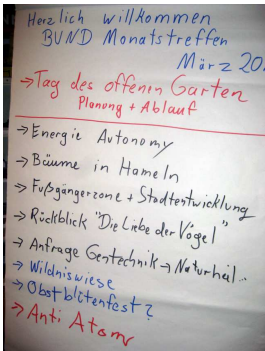 Herzlich willkommen
BUND Monatstreffen
März 20
→ Tag des offenen Garten
Planung + Ablauf
→ Energie Autonomy
→ Bäume in Hameln
→ Fußgängerzone + Stadtentwicklung
→ Rückblick "Die Liebe der Vögel"
→ Anfrage Gentechnik → Naturheil..
→ Wildniswiese
→ Obstblütenfest?
→ Anti Atom